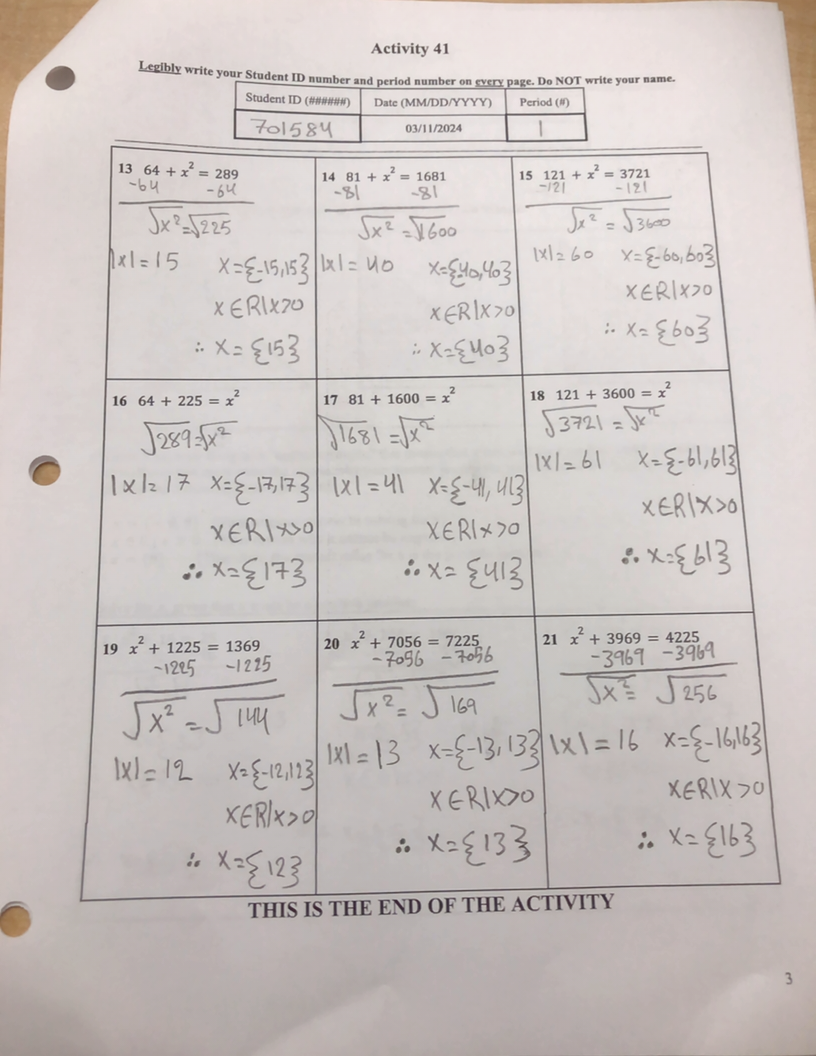 Activity 41
Legibly write your Student ID number and period number on every page. Do NOT write your name.
Student ID (######) Date (MM/DD/YYYY) Period (#)
701584 03/11/2024 1
13 64 + x² = 289
-64 -64
√x² = √225
|x| = 15 x={-15,15}
x∈R|x>0
∴ x = {15}
14 81 + x² = 1681
-81 -81
√x² = √1600
|x| = 40 x={-40,40}
x∈R|x>0
∴ x={40}
15 121 + x² = 3721
-121 -121
√x² = √3600
|x| = 60 x={-60,60}
x∈R|x>0
∴ x = {60}
16 64 + 225 = x²
√289 = √x²
|x| = 17 x={-17,17}
x∈R|x>0
∴ x={17}
17 81 + 1600 = x²
√1681 = √x²
|x| = 41 x={-41,41}
x∈R|x>0
∴ x = {41}
18 121 + 3600 = x²
√3721 = √x²
|x| = 61 x={-61,61}
x∈R|x>0
∴ x={61}
19 x² + 1225 = 1369
-1225 -1225
√x² = √144
|x| = 12 x={-12,12}
x∈R|x>0
∴ x={12}
20 x² + 7056 = 7225
-7056 -7056
√x² = √169
|x| = 13 x={-13,13}
x∈R|x>0
∴ x={13}
21 x² + 3969 = 4225
-3969 -3969
√x² = √256
|x| = 16 x={-16,16}
x∈R|x>0
∴ x={16}
THIS IS THE END OF THE ACTIVITY
3